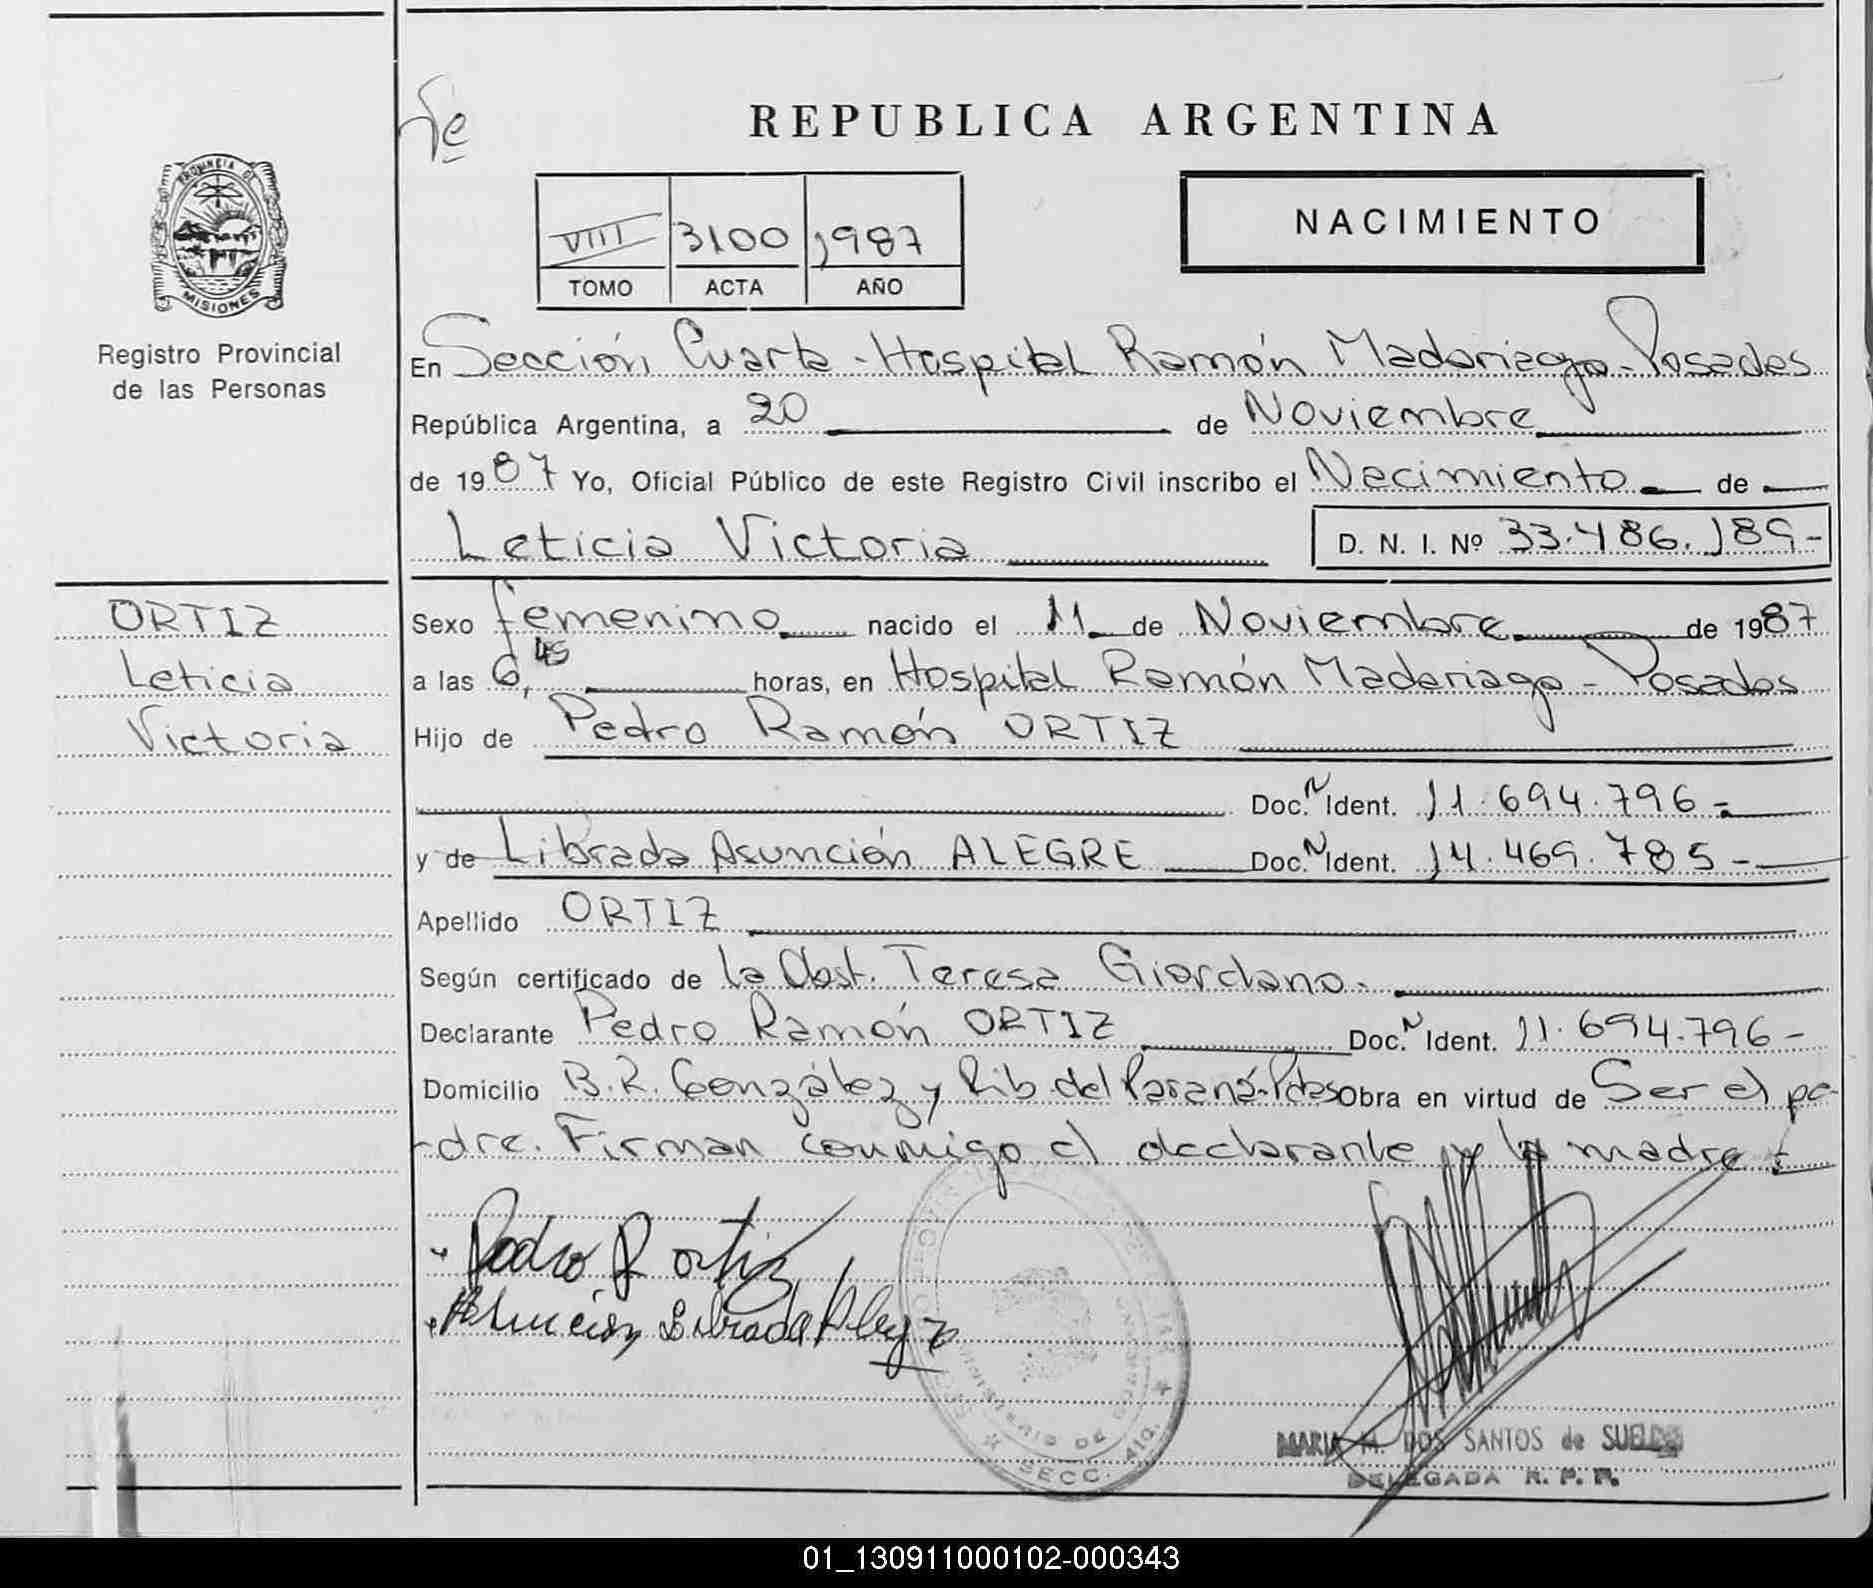 Fe
REPUBLICA ARGENTINA
VIII 3100 1987
TOMO ACTA AÑO
NACIMIENTO
PROVINCIA DE
MISIONES
Registro Provincial
de las Personas
En Sección Cuarta - Hospital Ramón Madariaga - Posadas
República Argentina, a 20 de Noviembre
de 1987 Yo, Oficial Público de este Registro Civil inscribo el Nacimiento de
Leticia Victoria D. N. I. Nº 33.486.189-
ORTIZ
Leticia
Victoria
Sexo femenino nacido el 11 de Noviembre de 1987
a las 6,45 horas, en Hospital Ramón Madariaga - Posadas
Hijo de Pedro Ramón ORTIZ
Doc. N Ident. 11.694.796-
y de Librada Asunción ALEGRE Doc. N Ident. 14.469.785-
Apellido ORTIZ
Según certificado de la Obst. Teresa Giordano.
Declarante Pedro Ramón ORTIZ Doc. N Ident. 11.694.796-
Domicilio B.R. González y Rib. del Paraná-Pdas Obra en virtud de Ser el pa-
-dre. Firman conmigo el declarante y la madre.-
Pedro R Ortiz
Asunción Librada Alegre
MINISTERIO DE GOBIERNO
SECC. 4ta.
MARIA M. DOS SANTOS de SUELDO
DELEGADA R. P. P.
01_130911000102-000343